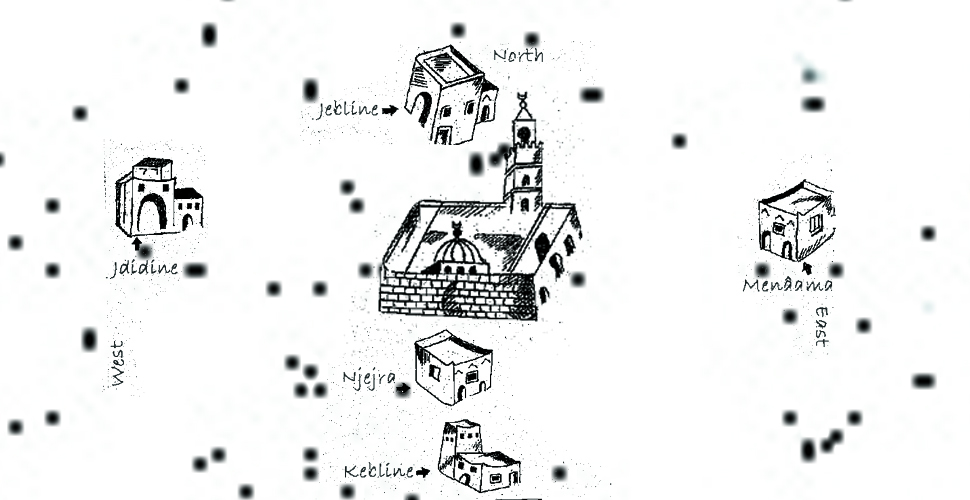 North
Jebline
Jdidine
Menâama
East
West
Njejra
Kebline